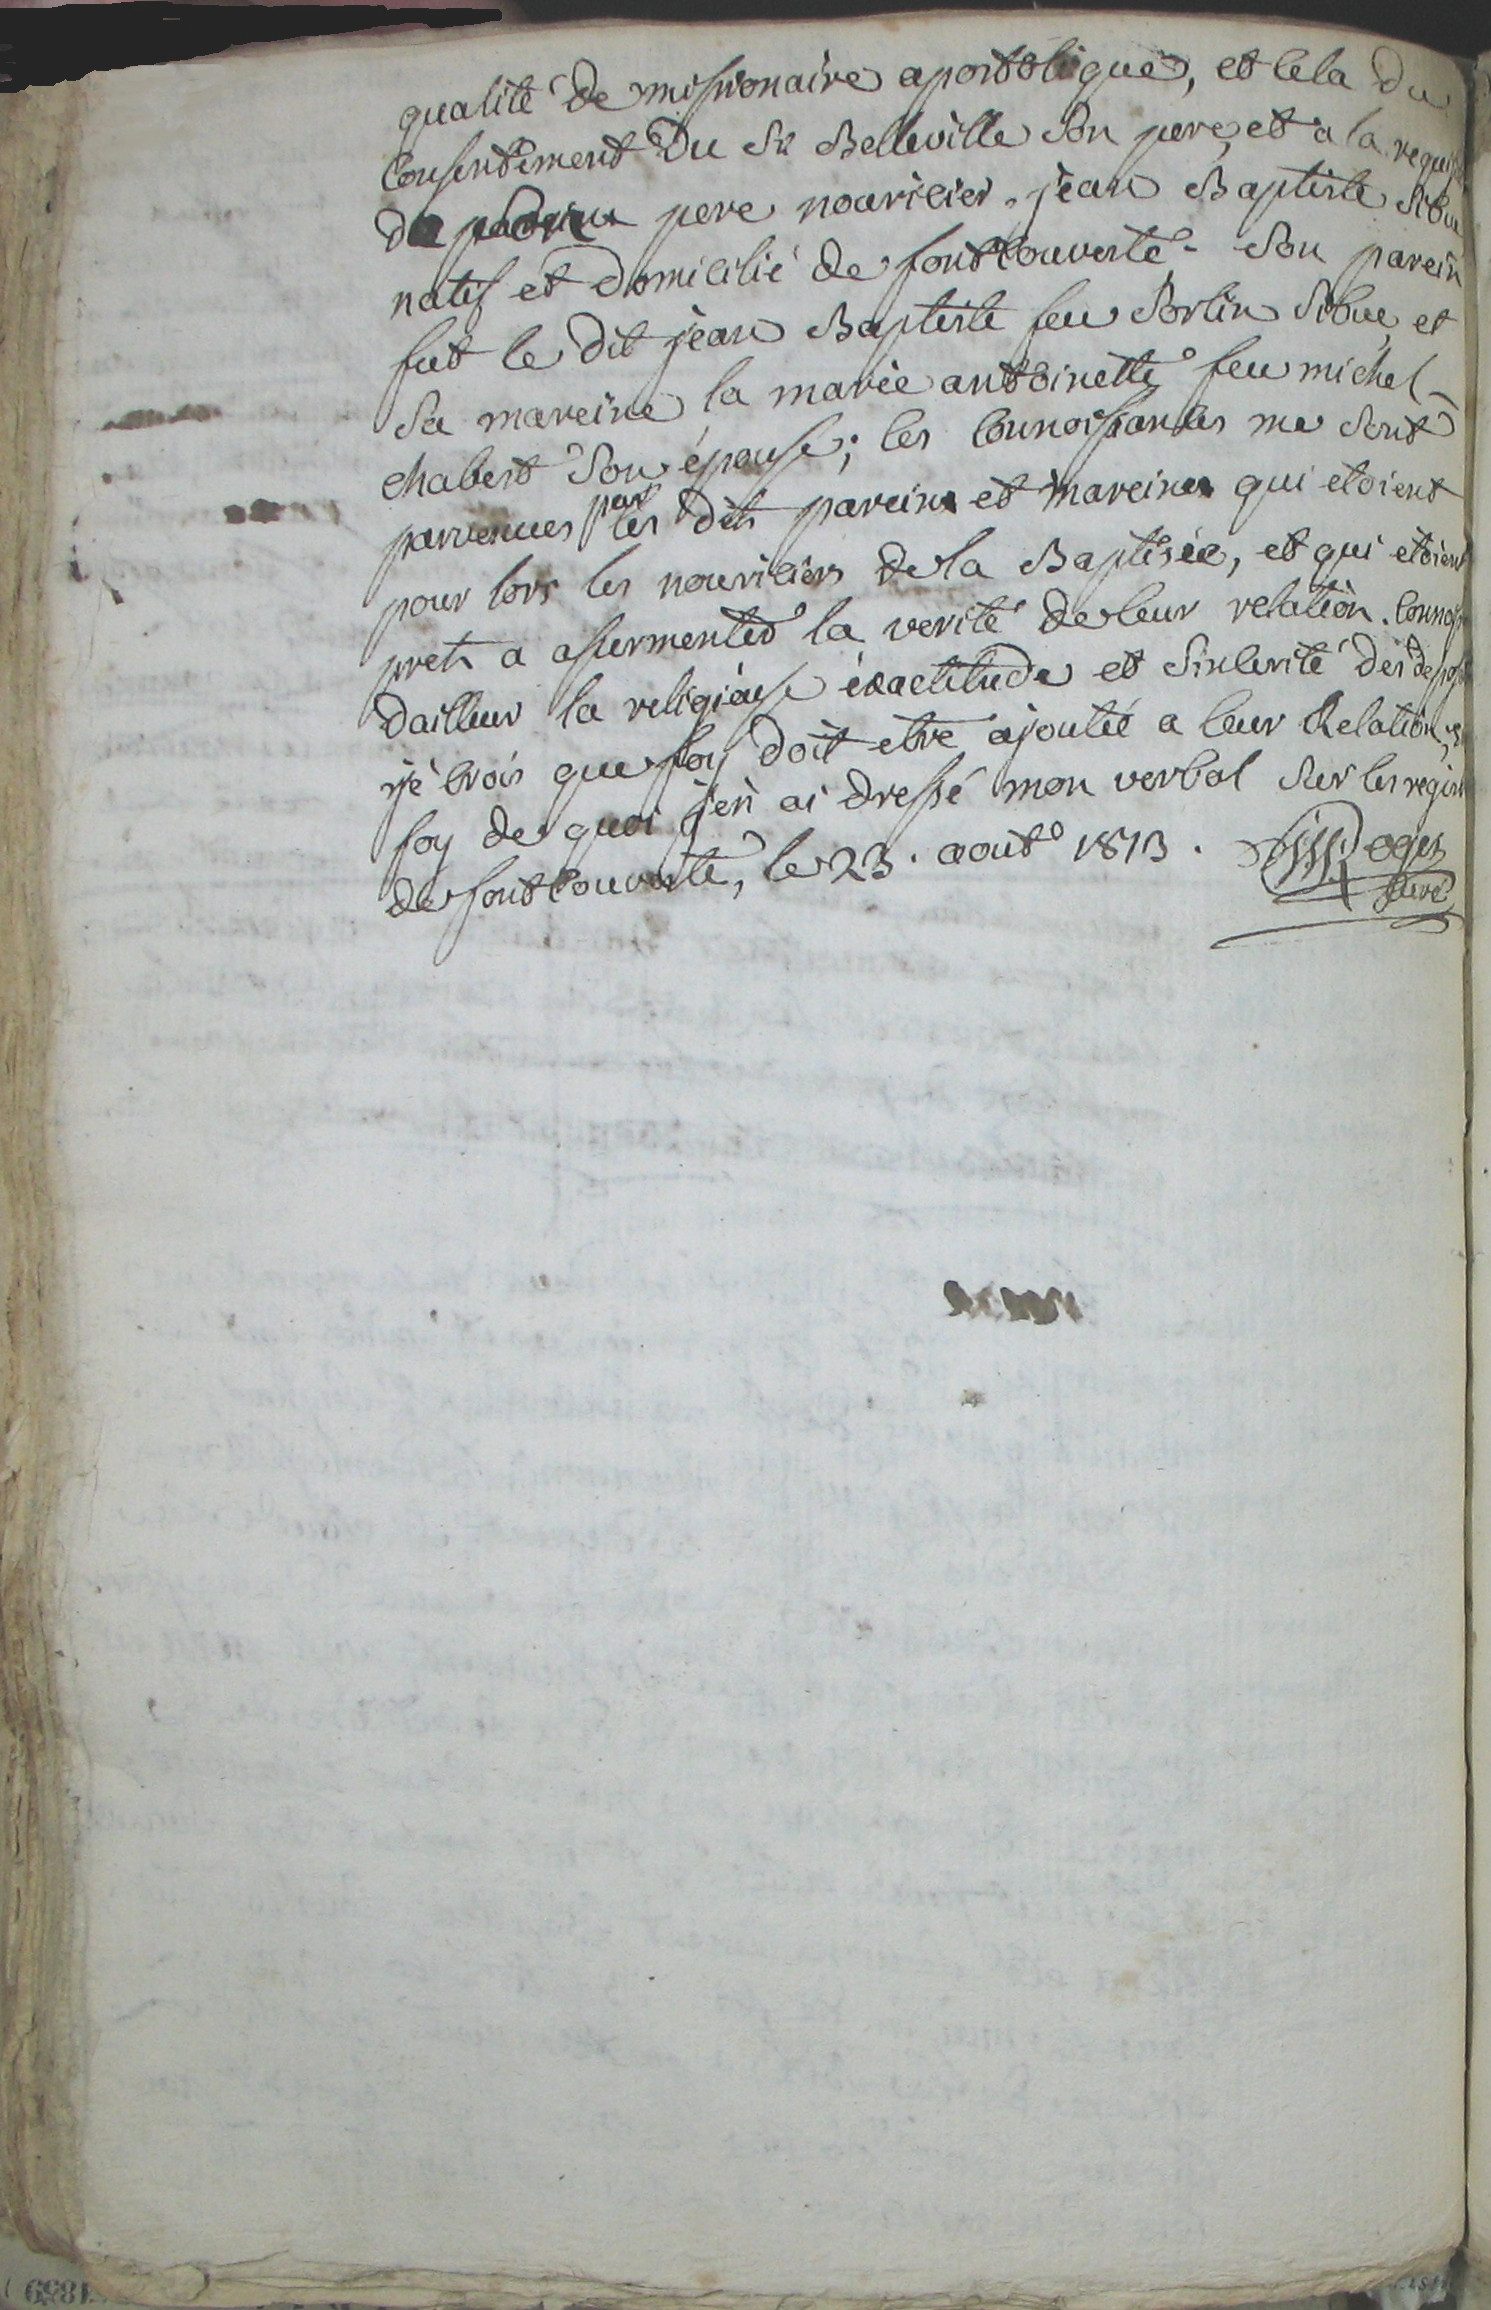 qualité de missionaire apostolique, et cela du
consentement du Sr Belleville son pere, et a la requis
de pere nouricier. jean Baptiste Sibue
natif et domicilié de fontcouverte - son parein
fut le dit jean Baptiste feu Sorlin Sibue, et
sa mareine la marie antoinette feu michel
chabert son épouse; les connoissances me sont
parvenues par les dits pareins et mareines qui etoient
pour lors les nouriciers de la Baptisée, et qui etoient
prets a assermenter la verité de leur relation. connoiss
dailleur la religieuse éxactitude et sincerité des depos
je crois que foy doit etre ajoutée a leur Relation, en
foy de quoi j'en ai dressé mon verbal sur les regis
de fontcouverte, le 23. aout 1813. Roges
curé